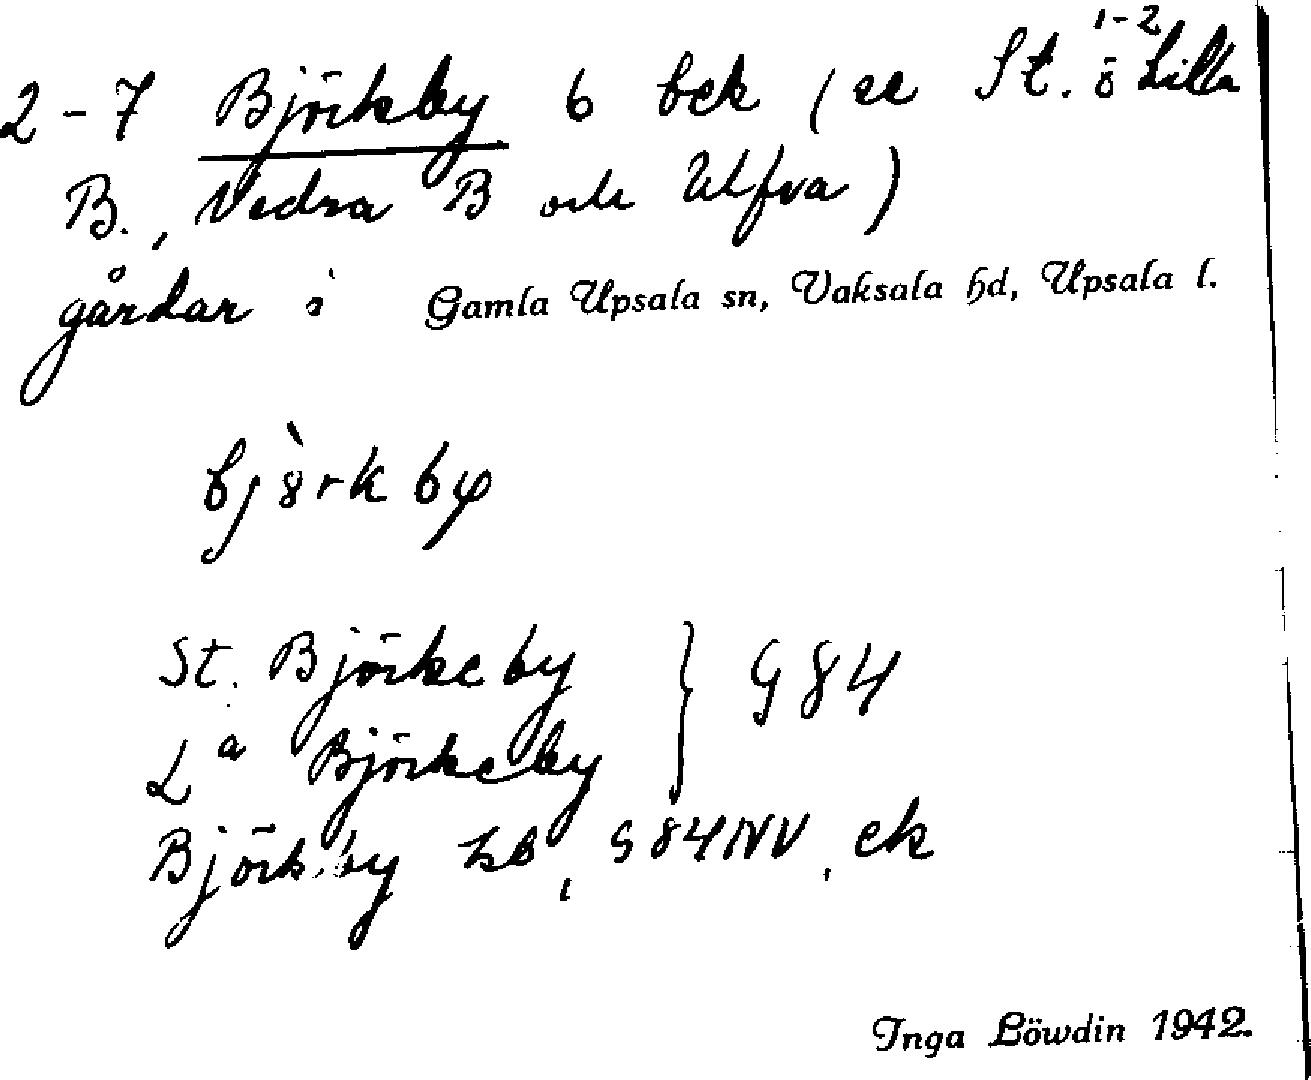 1-2
2-7 Björkby 6 bek (se St. o Lilla
B., Vedra B och Ulfva)
gårdar i Gamla Upsala sn, Vaksala hd, Upsala l.
bjòrkby
St. Björkeby } G84
La Björkeby
Björkby hb, G84NV, ek
Inga Löwdin 1942.